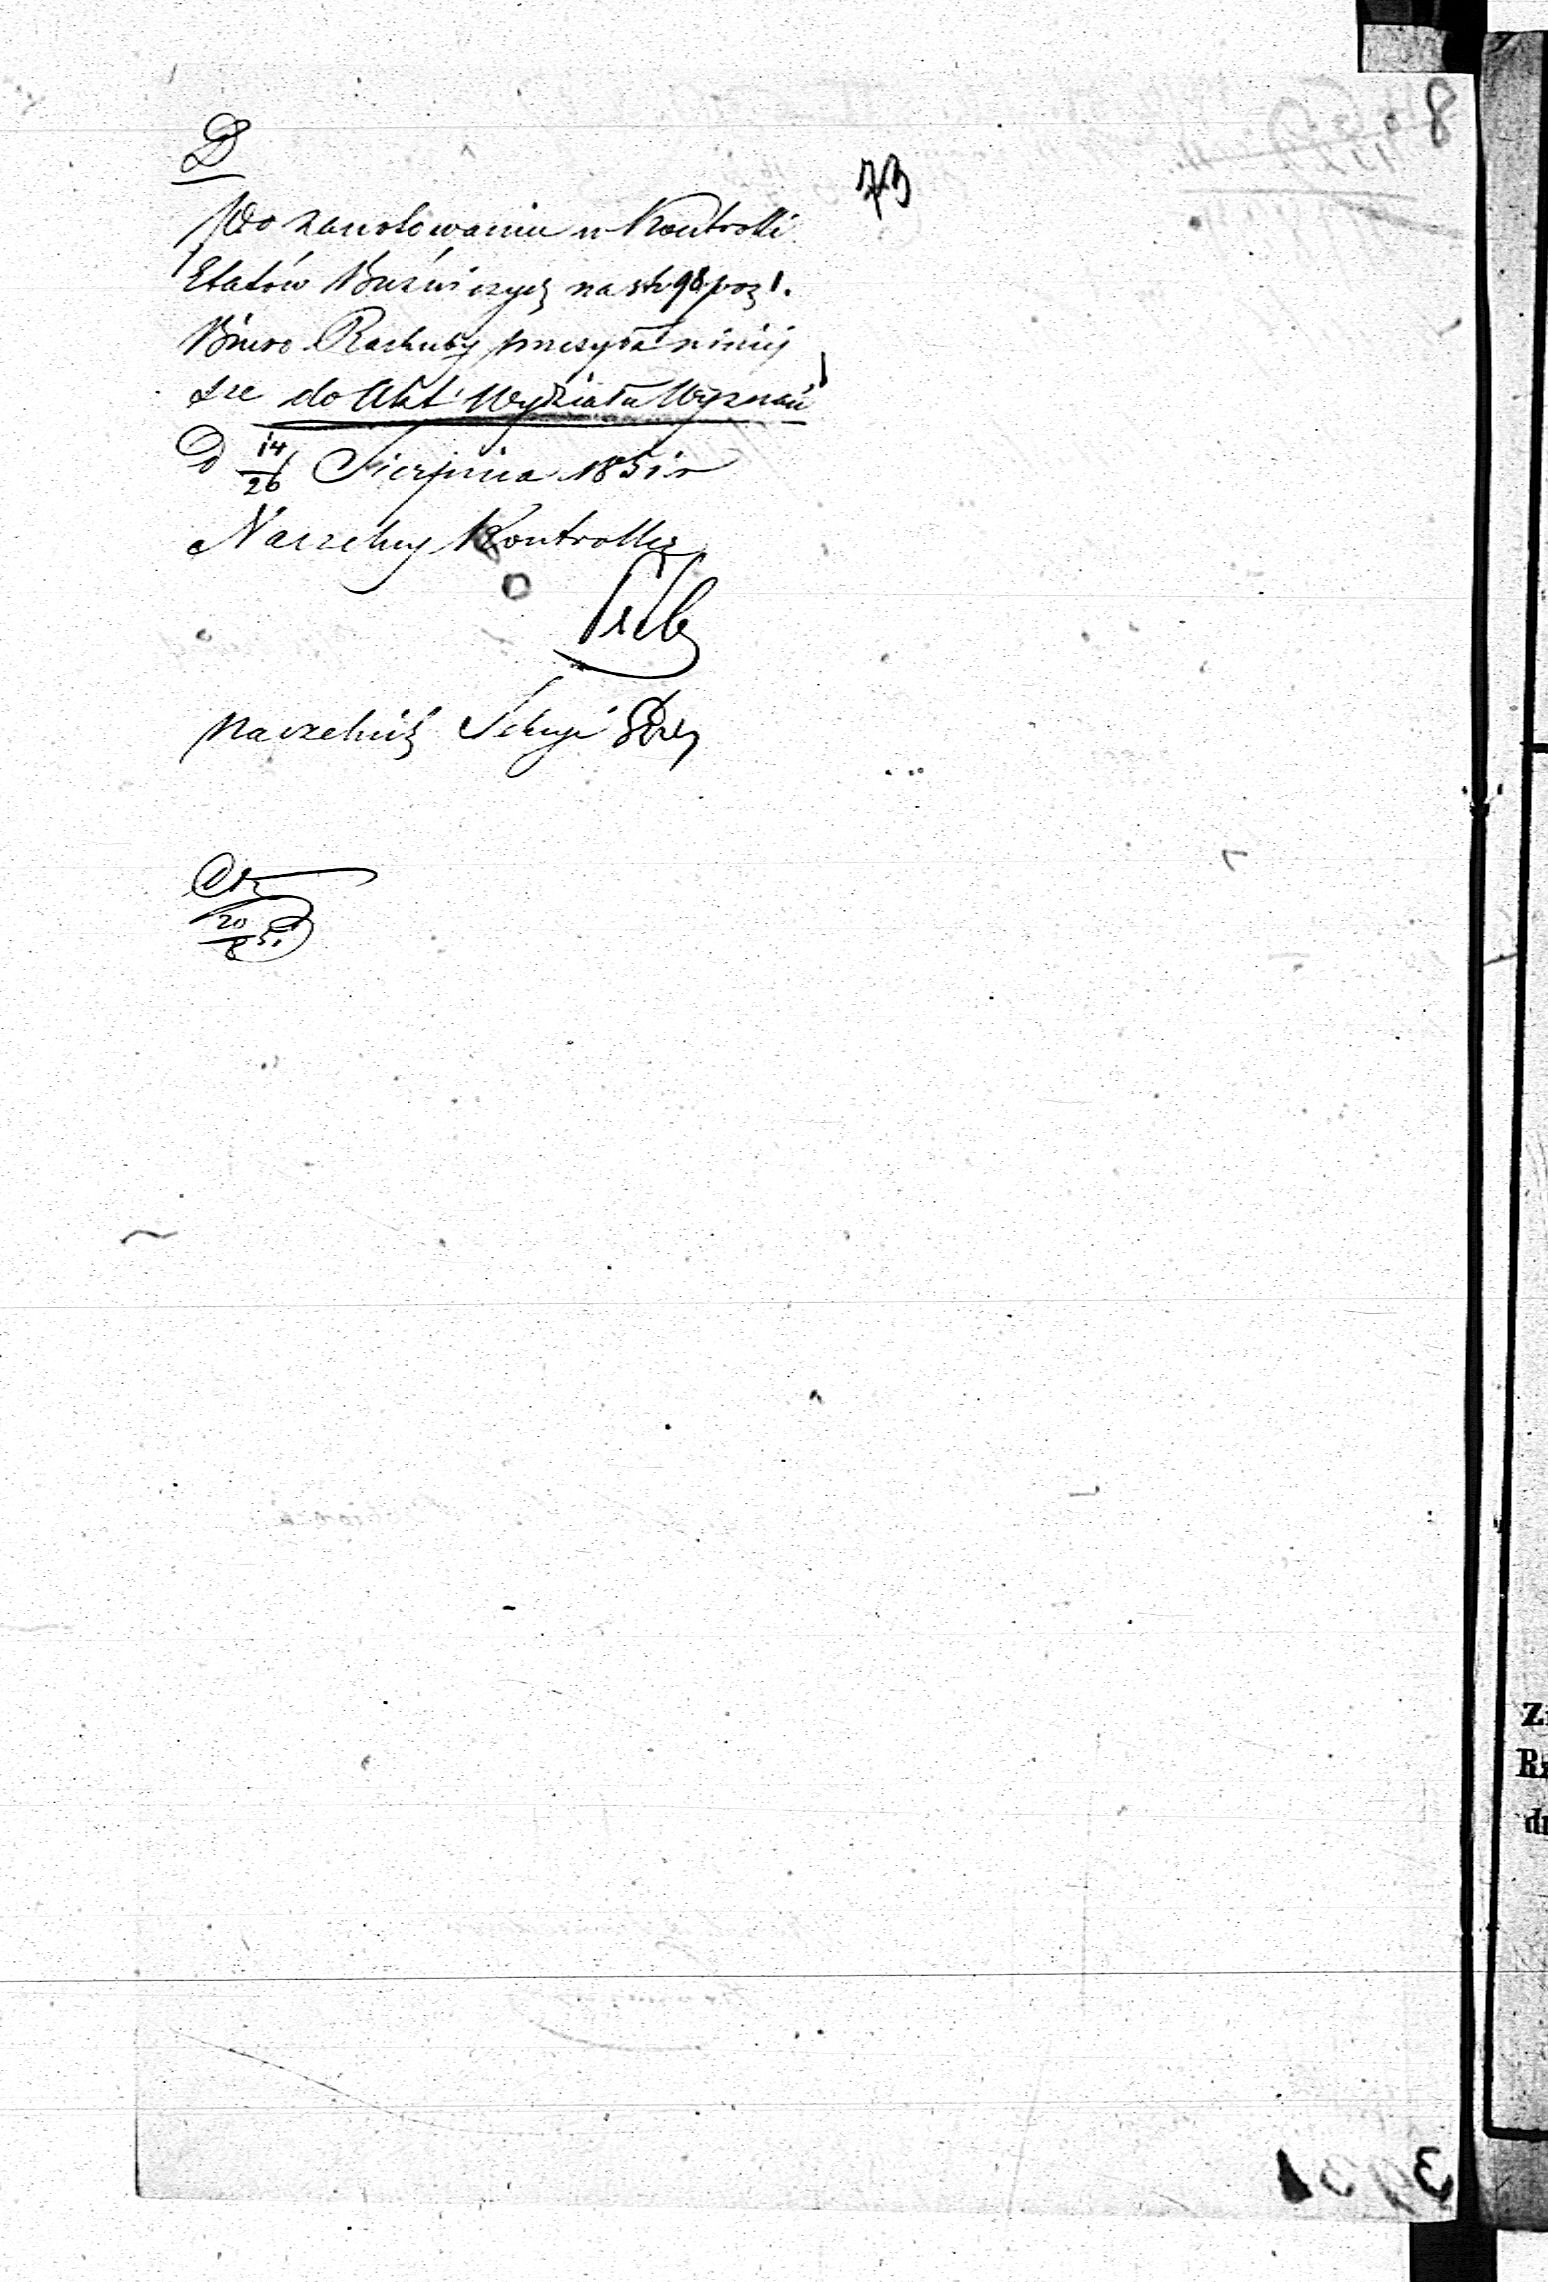 D
73
Po zanotowaniu w Kontrolli
Etatów Bużniczych na str 98 poz 1.
Biuro Rachuby przesyła niniej
sze do Akt Wydziału Wyznań
D 14/26 Sierpnia 1851 r
Naczelny Kontroller
Naczelnik Sekcyi
20/8 51
8
Z
R
d